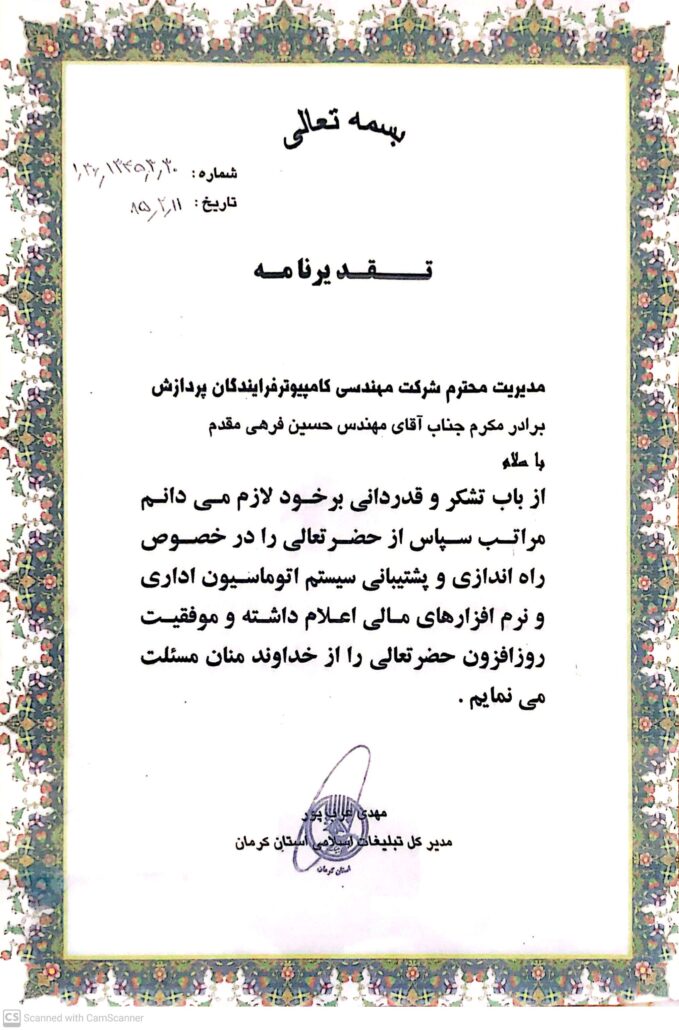 بسمه تعالی
شماره:
تاریخ: ۸۵٫۲٫۱۱
تقدیرنامه
مدیریت محترم شرکت مهندسی کامپیوترفرایندگان پردازش
برادر مکرم جناب آقای مهندس حسین فرهی مقدم
با سلام
از باب تشکر و قدردانی برخود لازم می دانم
مراتب سپاس از حضرتعالی را در خصوص
راه اندازی و پشتیبانی سیستم اتوماسیون اداری
و نرم افزارهای مالی اعلام داشته و موفقیت
روزافزون حضرتعالی را از خداوند منان مسئلت
می نمایم .
مهدی عرب پور
مدیر کل تبلیغات اسلامی استان کرمان
استان کرمان
CS Scanned with CamScanner